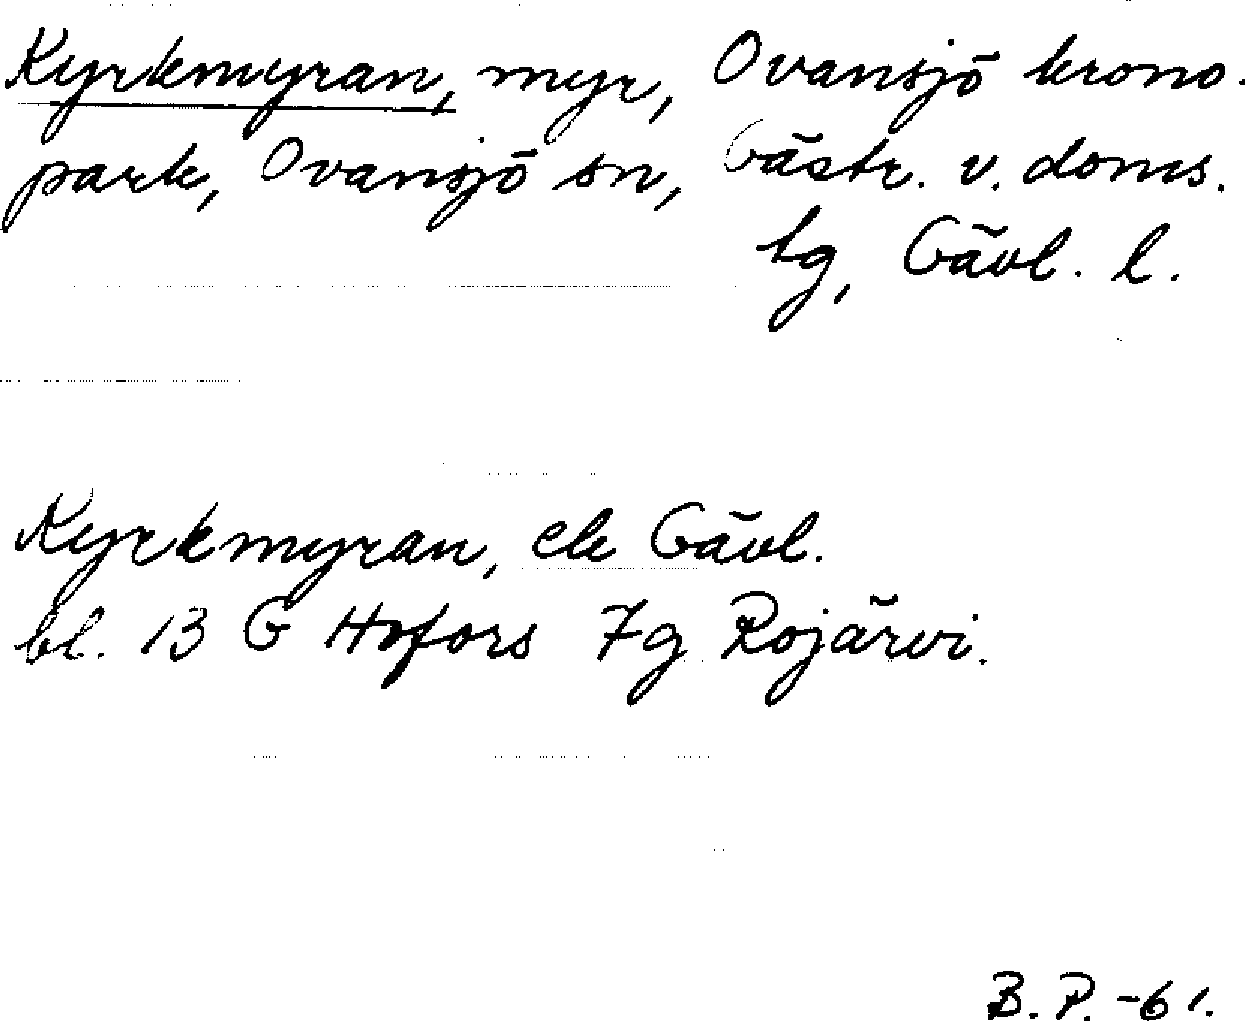 Kyrkmyran, myr, Ovansjö krono-
park, Ovansjö sn, Gästr. v. doms.
tg, Gävl. l.
Kyrkmyran, ek Gävl.
bl. 13 G Hofors 7g Rojärvi.
B. P. -61.